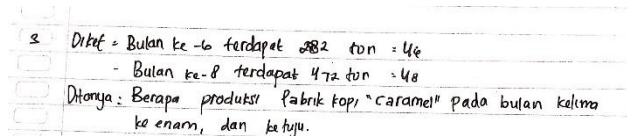 3 Diket = Bulan ke -6 terdapat 282 ton = U6
- Bulan ke-8 terdapat 472 ton = U8
Ditanya : Berapa produksi Pabrik kopi "caramel" pada bulan kelima
ke enam, dan ke tujuh.